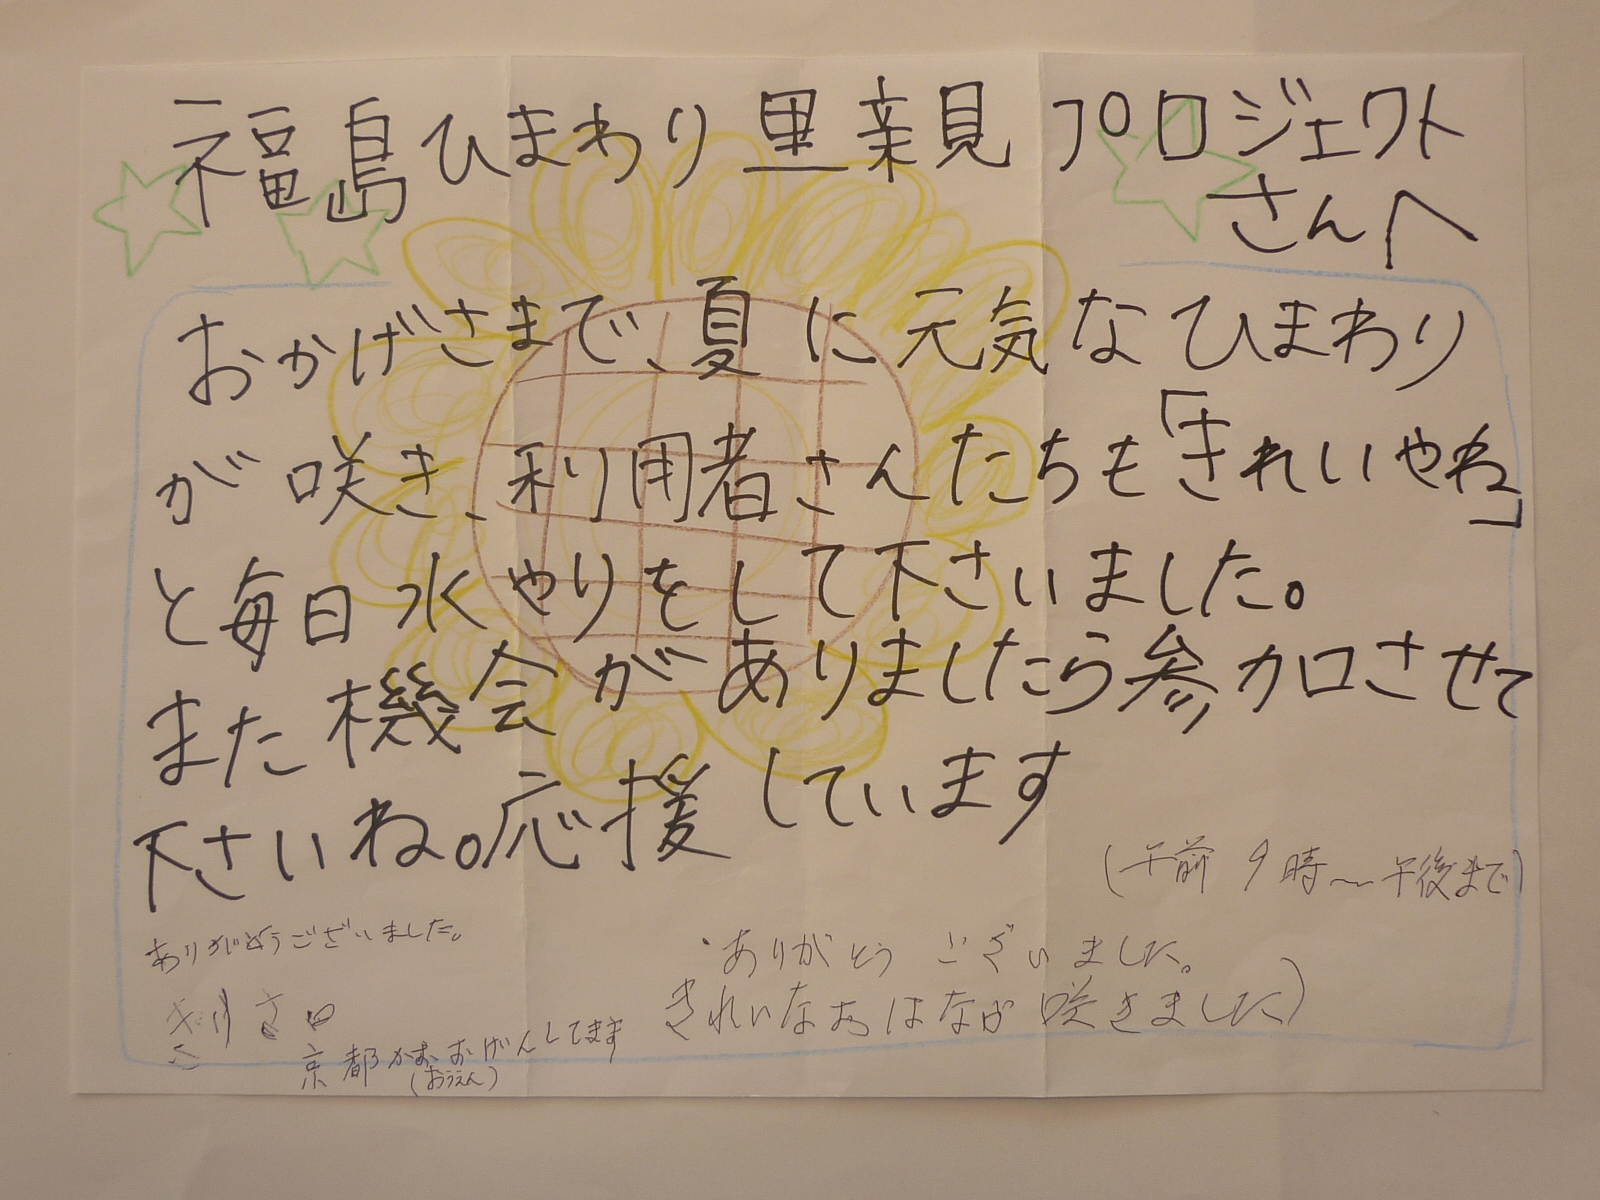 福島ひまわり里親プロジェクト
さんへ
おかげさまで、夏に元気なひまわり
が咲き、利用者さんたちも「きれいやね」
と毎日水やりをして下さいました。
また機会がありましたら参加させて
下さいね。応援しています
(午前9時〜午後まで)
ありがとうございました。
・ありがとうございました。
きれいなおはなが咲きました)
京都かお おげんしてます
(おうえん)